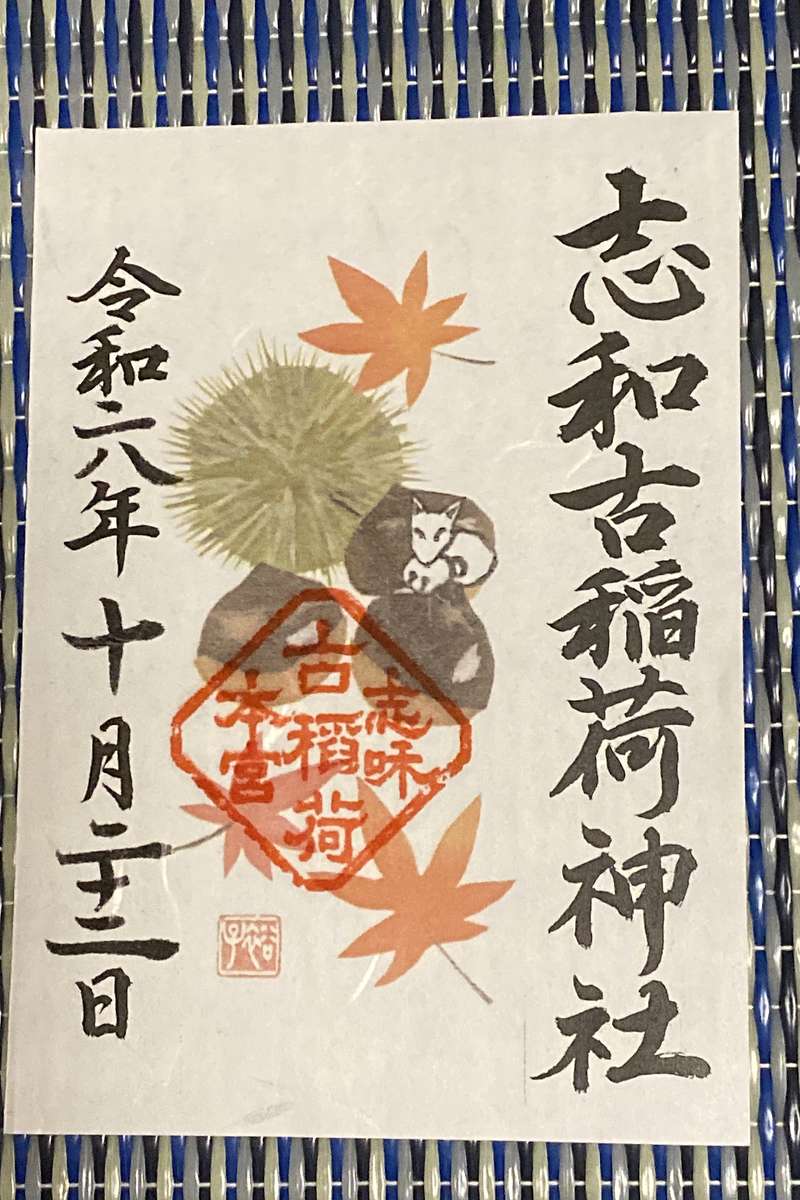 志和古稲荷神社
志咊
古稻荷
本宮
令和六年十月二十二日